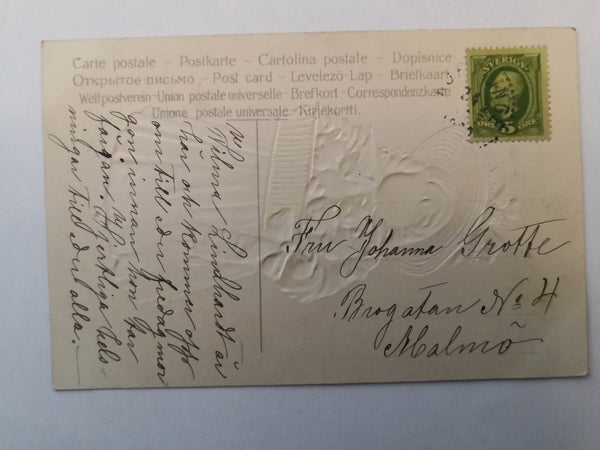 Carte postale – Postkarte – Cartolina postale – Dopisnice
Открытое-письмо – Post card – Levelező-Lap – Briefkaart
Weltpostverein-Union postale universelle-Brefkort-Correspondenzkarte
Unione postale universale-Kirjekortti.
SVERIGE
5
ÖRE ÖRE
Wilma Lindhardt är
här och kommer opp
om till den fredag mor
gon innan hon far
Hjertliga hels
ningar till eder alla.
Fru Johanna Grotte
Brogatan No 4
Malmö